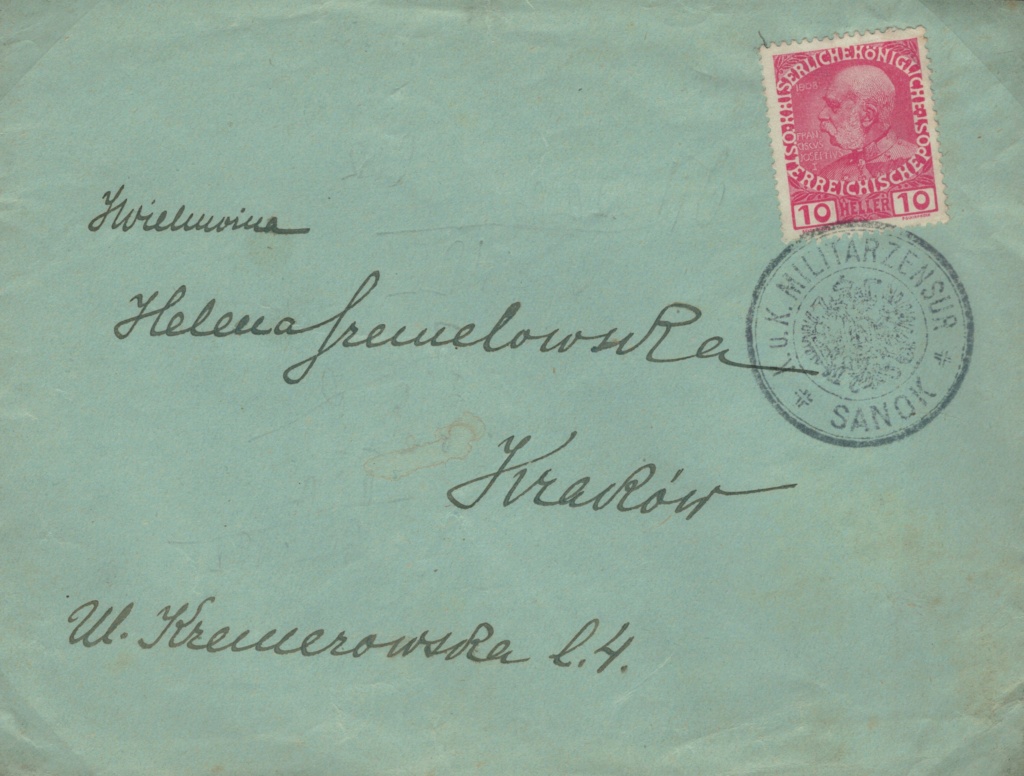 KAISERLICHE KÖNIGLICHE ÖSTERREICHISCHE POST
1908
FRANZ
JOSEPH I
10 HELLER 10
K.u.K. MILITÄRZENSUR
SANOK
JWielmożna
Helena
Kraków
Ul. Kremerowska l. 4.